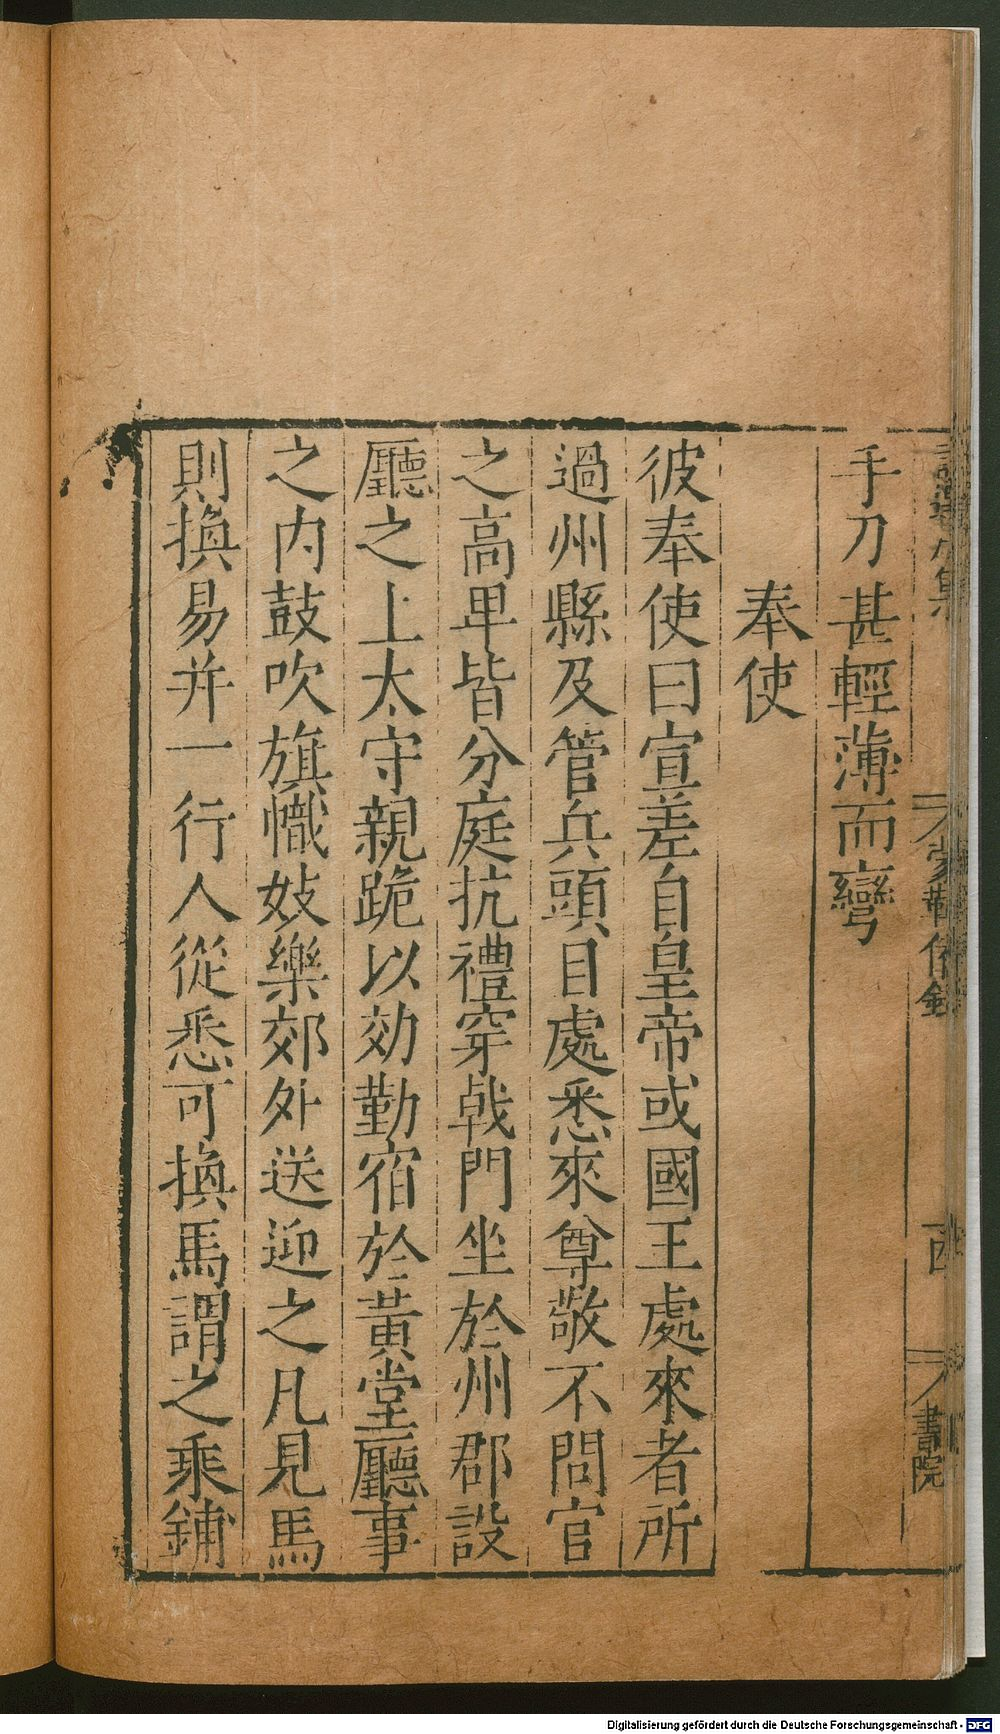 手刀甚輕薄而彎
奉使
彼奉使曰宣差自皇帝或國王處來者所
過州縣及管兵頭目處悉來尊敬不問官
之高卑皆分庭抗禮穿戟門坐於州郡設
廳之上太守親跪以効勤宿於黃堂廳事
之内鼓吹旗幟妓樂郊外送迎之凡見馬
則換易并一行人從悉可換馬謂之乘鋪
書院
Digitalisierung gefördert durch die Deutsche Forschungsgemeinschaft - DFG